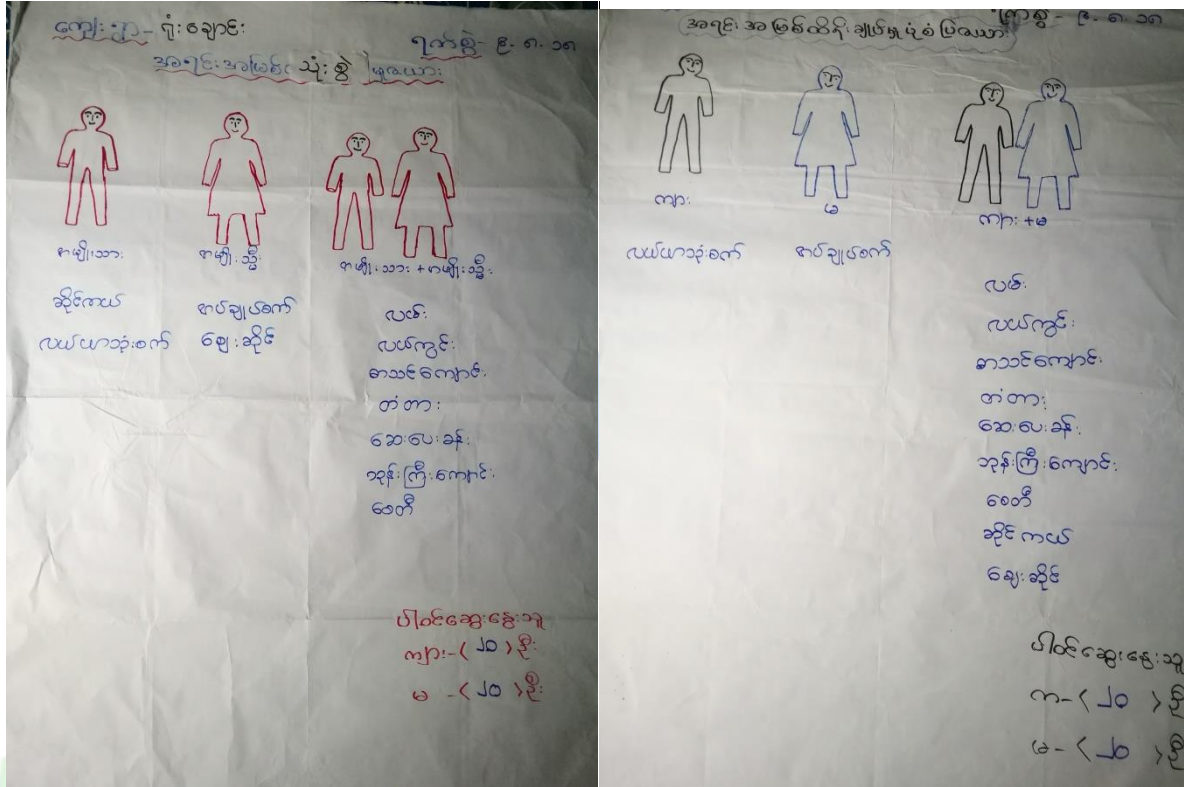 ကျေးရွာ - ရုံးချောင်း
ရက်စွဲ - ၉. ၈. ၁၈
အရင်းအမြစ် သုံးစွဲ မှုဇယား
အမျိုးသား
အမျိုးသ္မီး
အမျိုးသား + အမျိုးသ္မီး
ဆိုင်ကယ်
အပ်ချုပ်စက်
လမ်း
လယ်ယာသုံးစက်
ဈေးဆိုင်
လယ်ကွင်း
စာသင်ကျောင်း
တံတား
ဆေးပေးခန်း
ဘုန်းကြီးကျောင်း
စေတီ
ပါဝင်ဆွေးနွေးသူ
ကျား - ( ၂၀ ) ဦး
မ - ( ၂၀ ) ဦး
၉. ၈. ၁၈
အရင်းအမြစ်ထိန်းချုပ်မှုပုံစံပြဇယား
ကျား
မ
ကျား + မ
လယ်ယာသုံးစက်
အပ်ချုပ်စက်
လမ်း
လယ်ကွင်း
စာသင်ကျောင်း
တံတား
ဆေးပေးခန်း
ဘုန်းကြီးကျောင်း
စေတီ
ဆိုင်ကယ်
ဈေးဆိုင်
ပါဝင်ဆွေးနွေးသူ
က - ( ၂၀ ) ဦ
မ - ( ၂၀ ) ဦ